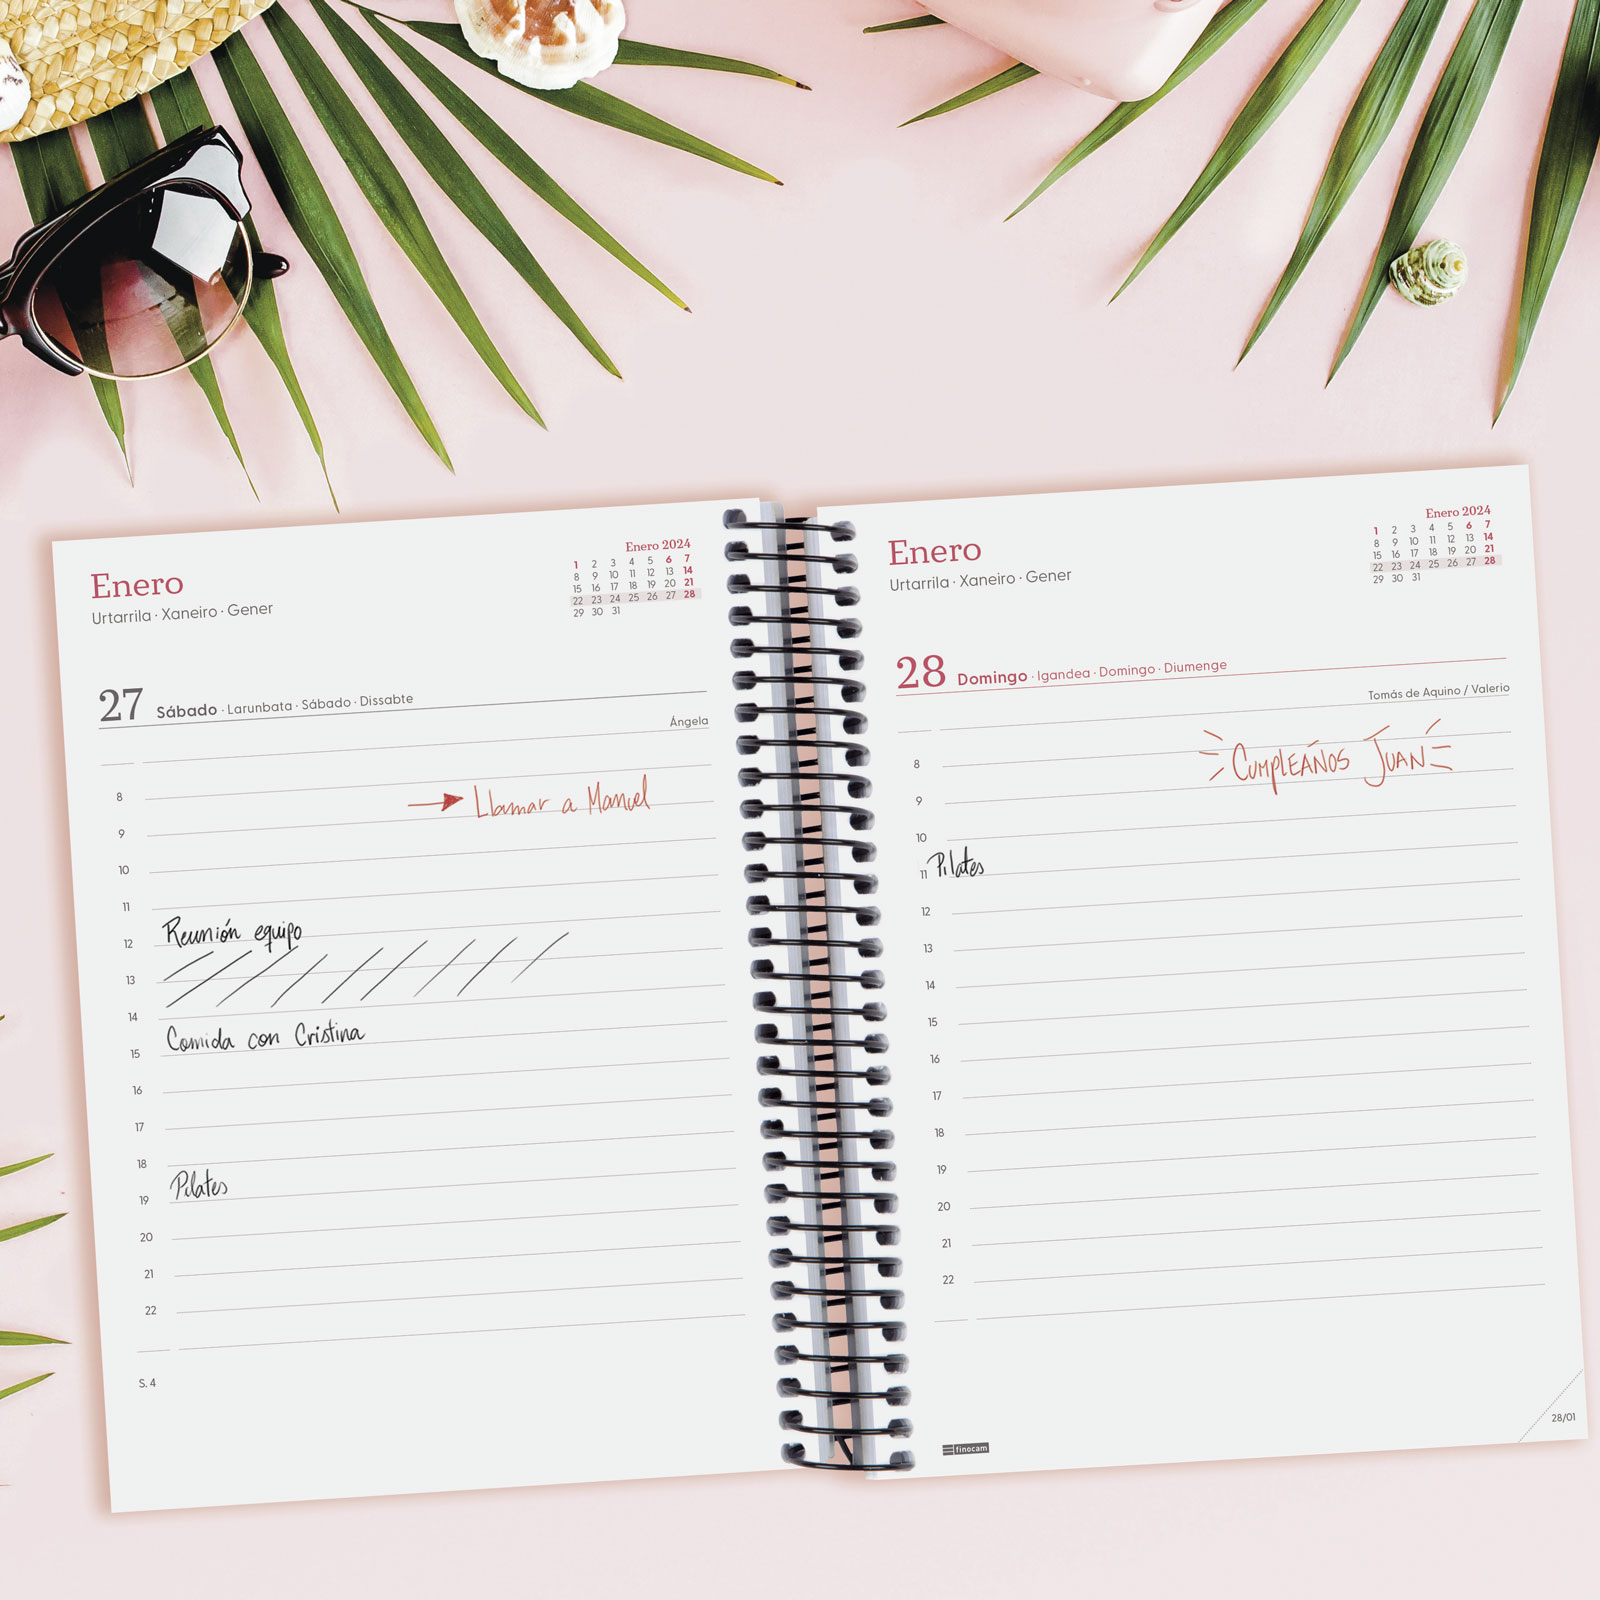 Enero
Urtarrila · Xaneiro · Gener
Enero 2024
1 2 3 4 5 6 7
8 9 10 11 12 13 14
15 16 17 18 19 20 21
22 23 24 25 26 27 28
29 30 31
27 Sábado · Larunbata · Sábado · Dissabte
Ángela
8
Llamar a Manuel
9
10
11
12 Reunión equipo
13
14
15 Comida con Cristina
16
17
18
19 Pilates
20
21
22
S. 4
Enero
Urtarrila · Xaneiro · Gener
Enero 2024
1 2 3 4 5 6 7
8 9 10 11 12 13 14
15 16 17 18 19 20 21
22 23 24 25 26 27 28
29 30 31
28 Domingo · Igandea · Domingo · Diumenge
Tomás de Aquino / Valerio
8 Cumpleaños Juan
9
10
11 Pilates
12
13
14
15
16
17
18
19
20
21
22
finocam
28/01